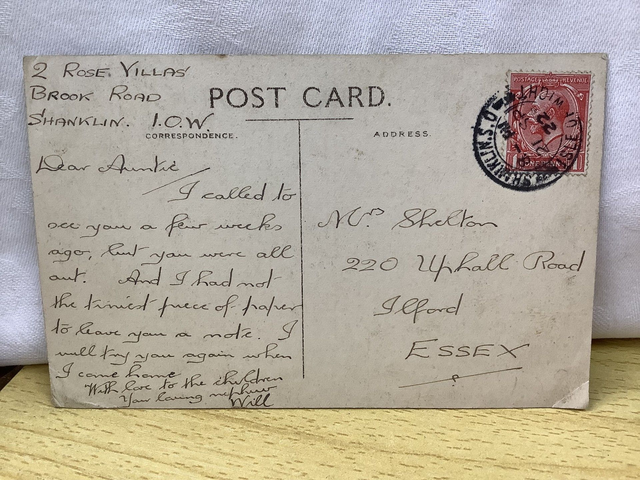 2 Rose Villas
Brook Road
Shanklin. I.O.W.
POST CARD.
CORRESPONDENCE.
Dear Auntie
I called to
see you a few weeks
ago, but you were all
out. And I had not
the tiniest piece of paper
to leave you a note. I
will try you again when
I come home
With love to the children
Your loving nephew
Will
ADDRESS.
Mrs Shelton
220 Uphall Road
Ilford
ESSEX
POSTAGE REVENUE
ONE PENNY
SHANKLIN S.O.
ISLE OF WIGHT
22